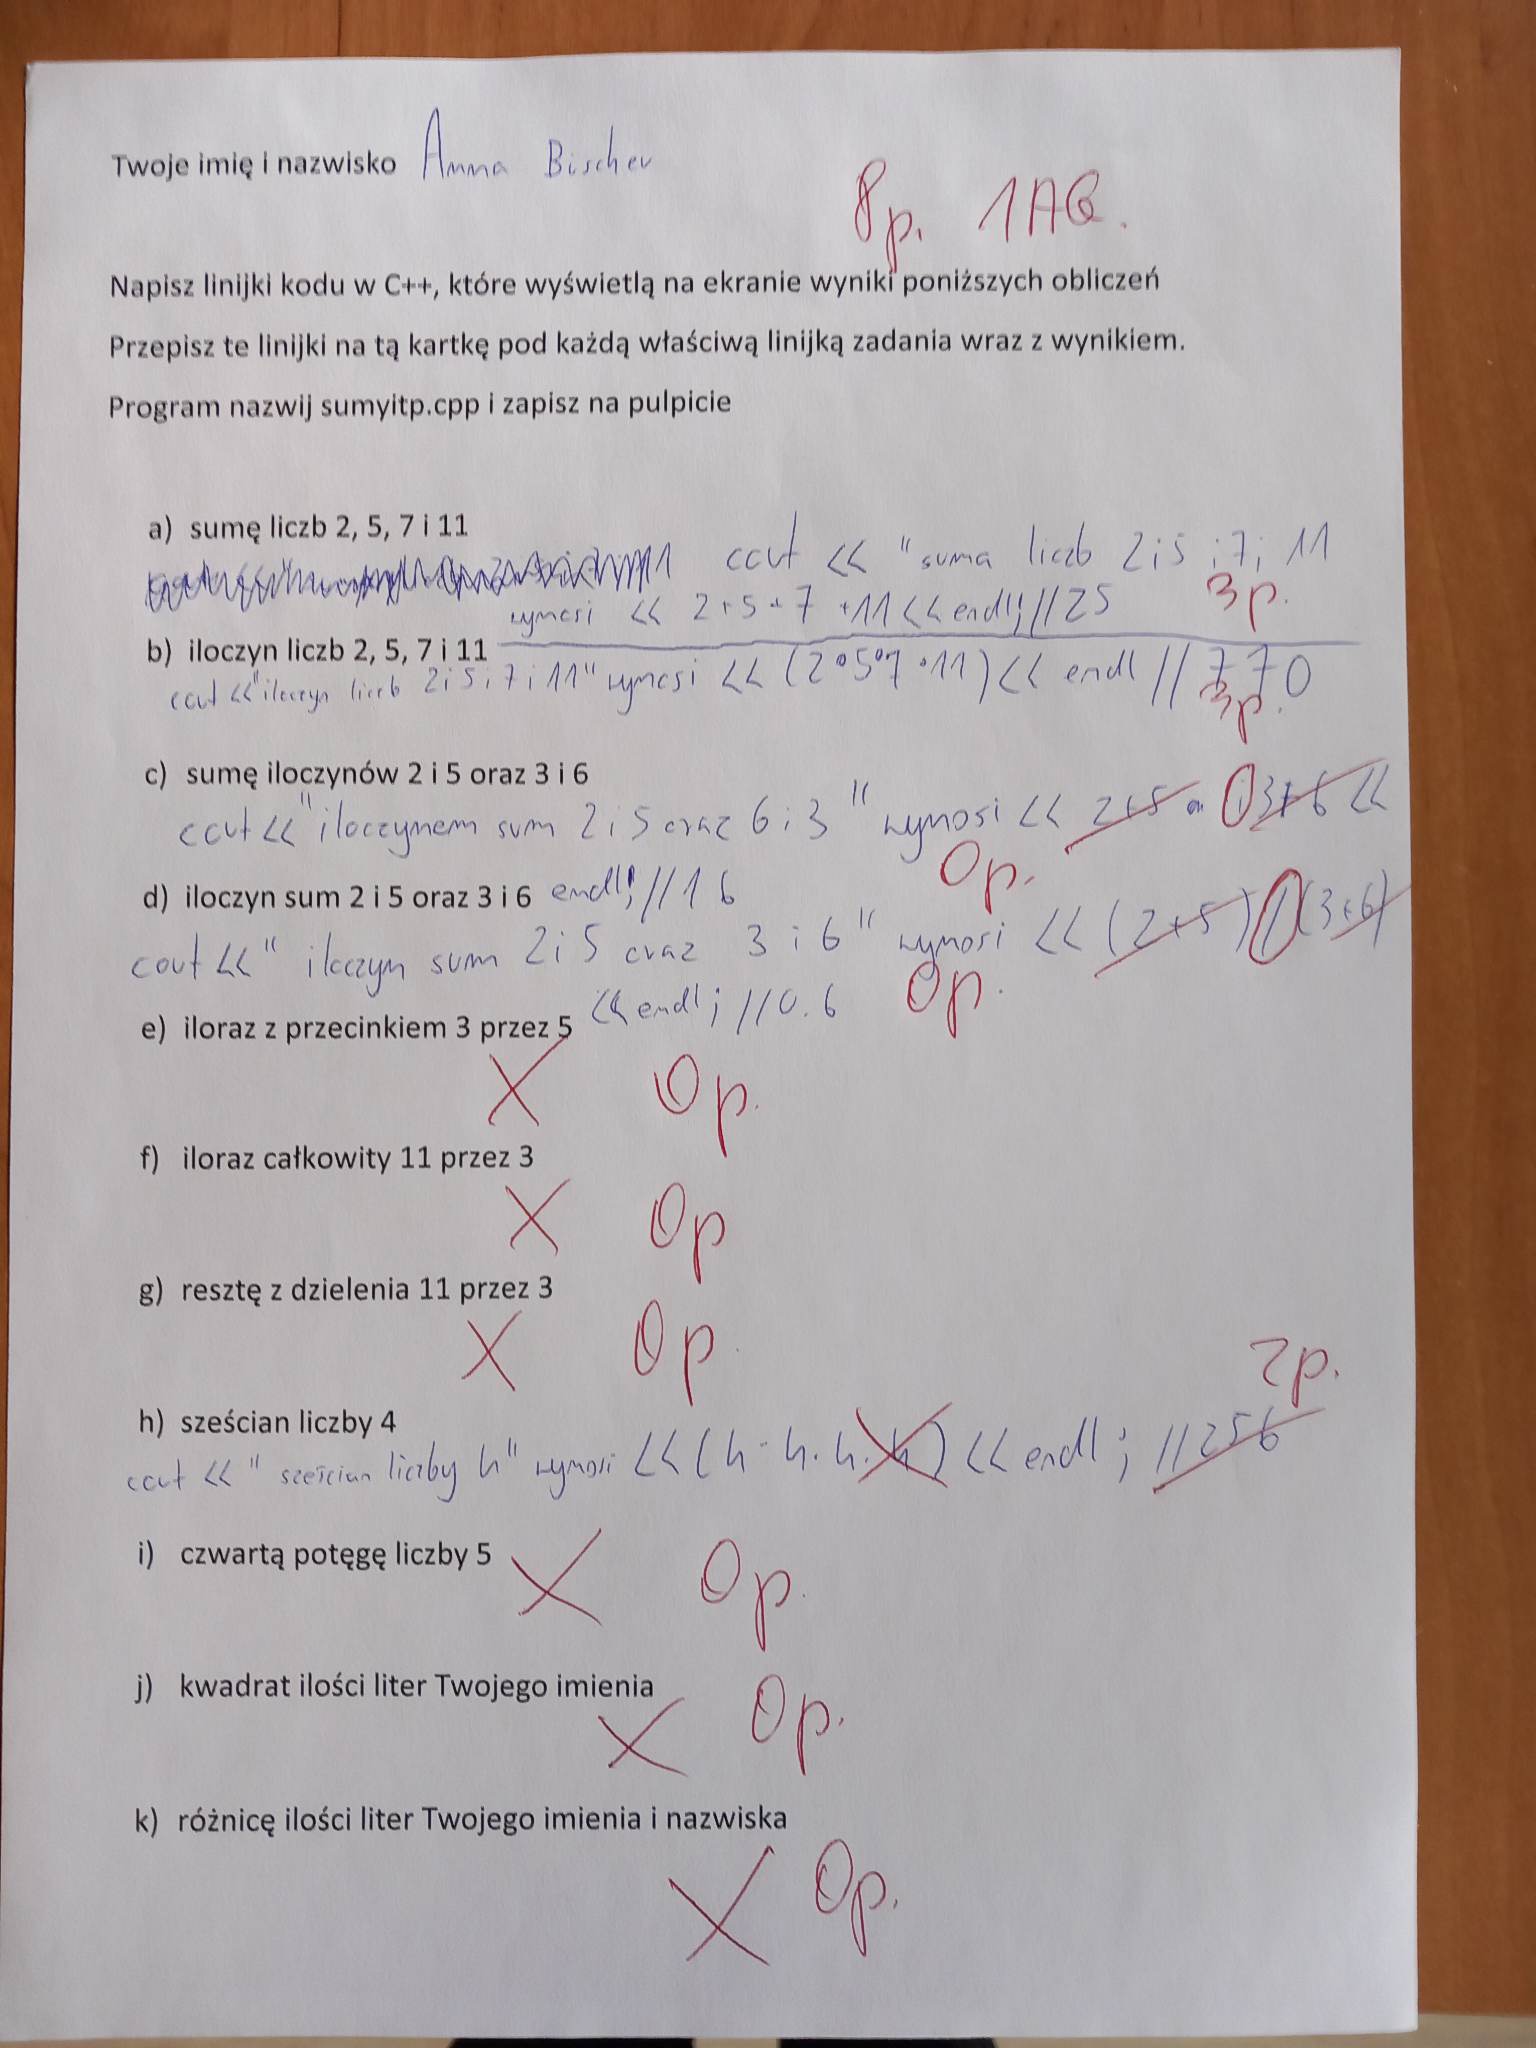 Twoje imię i nazwisko Anna Bischev
8p. 1AG.
Napisz linijki kodu w C++, które wyświetlą na ekranie wyniki poniższych obliczeń
Przepisz te linijki na tą kartkę pod każdą właściwą linijką zadania wraz z wynikiem.
Program nazwij sumyitp.cpp i zapisz na pulpicie
a) sumę liczb 2, 5, 7 i 11
cout << "suma liczb 2 i 5 i 7 i 11
wynosi << 2+5+7+11<<endl;//25 3p.
b) iloczyn liczb 2, 5, 7 i 11
cout <<"iloczyn liczb 2 i 5 i 7 i 11" wynosi << (2•5•7•11)<< endl // 770
3p.
c) sumę iloczynów 2 i 5 oraz 3 i 6
cout<<"iloczynem sum 2 i 5 oraz 6 i 3" wynosi << 2+5 3+6 <<
0p.
d) iloczyn sum 2 i 5 oraz 3 i 6 endl;//16
cout<<" iloczyn sum 2 i 5 oraz 3 i 6" wynosi << (2+5)/(3+6)
<<endl; //0.6 0p.
e) iloraz z przecinkiem 3 przez 5
X 0p.
f) iloraz całkowity 11 przez 3
X 0p
g) resztę z dzielenia 11 przez 3
X 0p.
2p.
h) sześcian liczby 4
cout << "sześcian liczby 4" wynosi <<(4·4·4·4) << endl; //256
i) czwartą potęgę liczby 5 X 0p.
j) kwadrat ilości liter Twojego imienia
X 0p.
k) różnicę ilości liter Twojego imienia i nazwiska
X 0p.